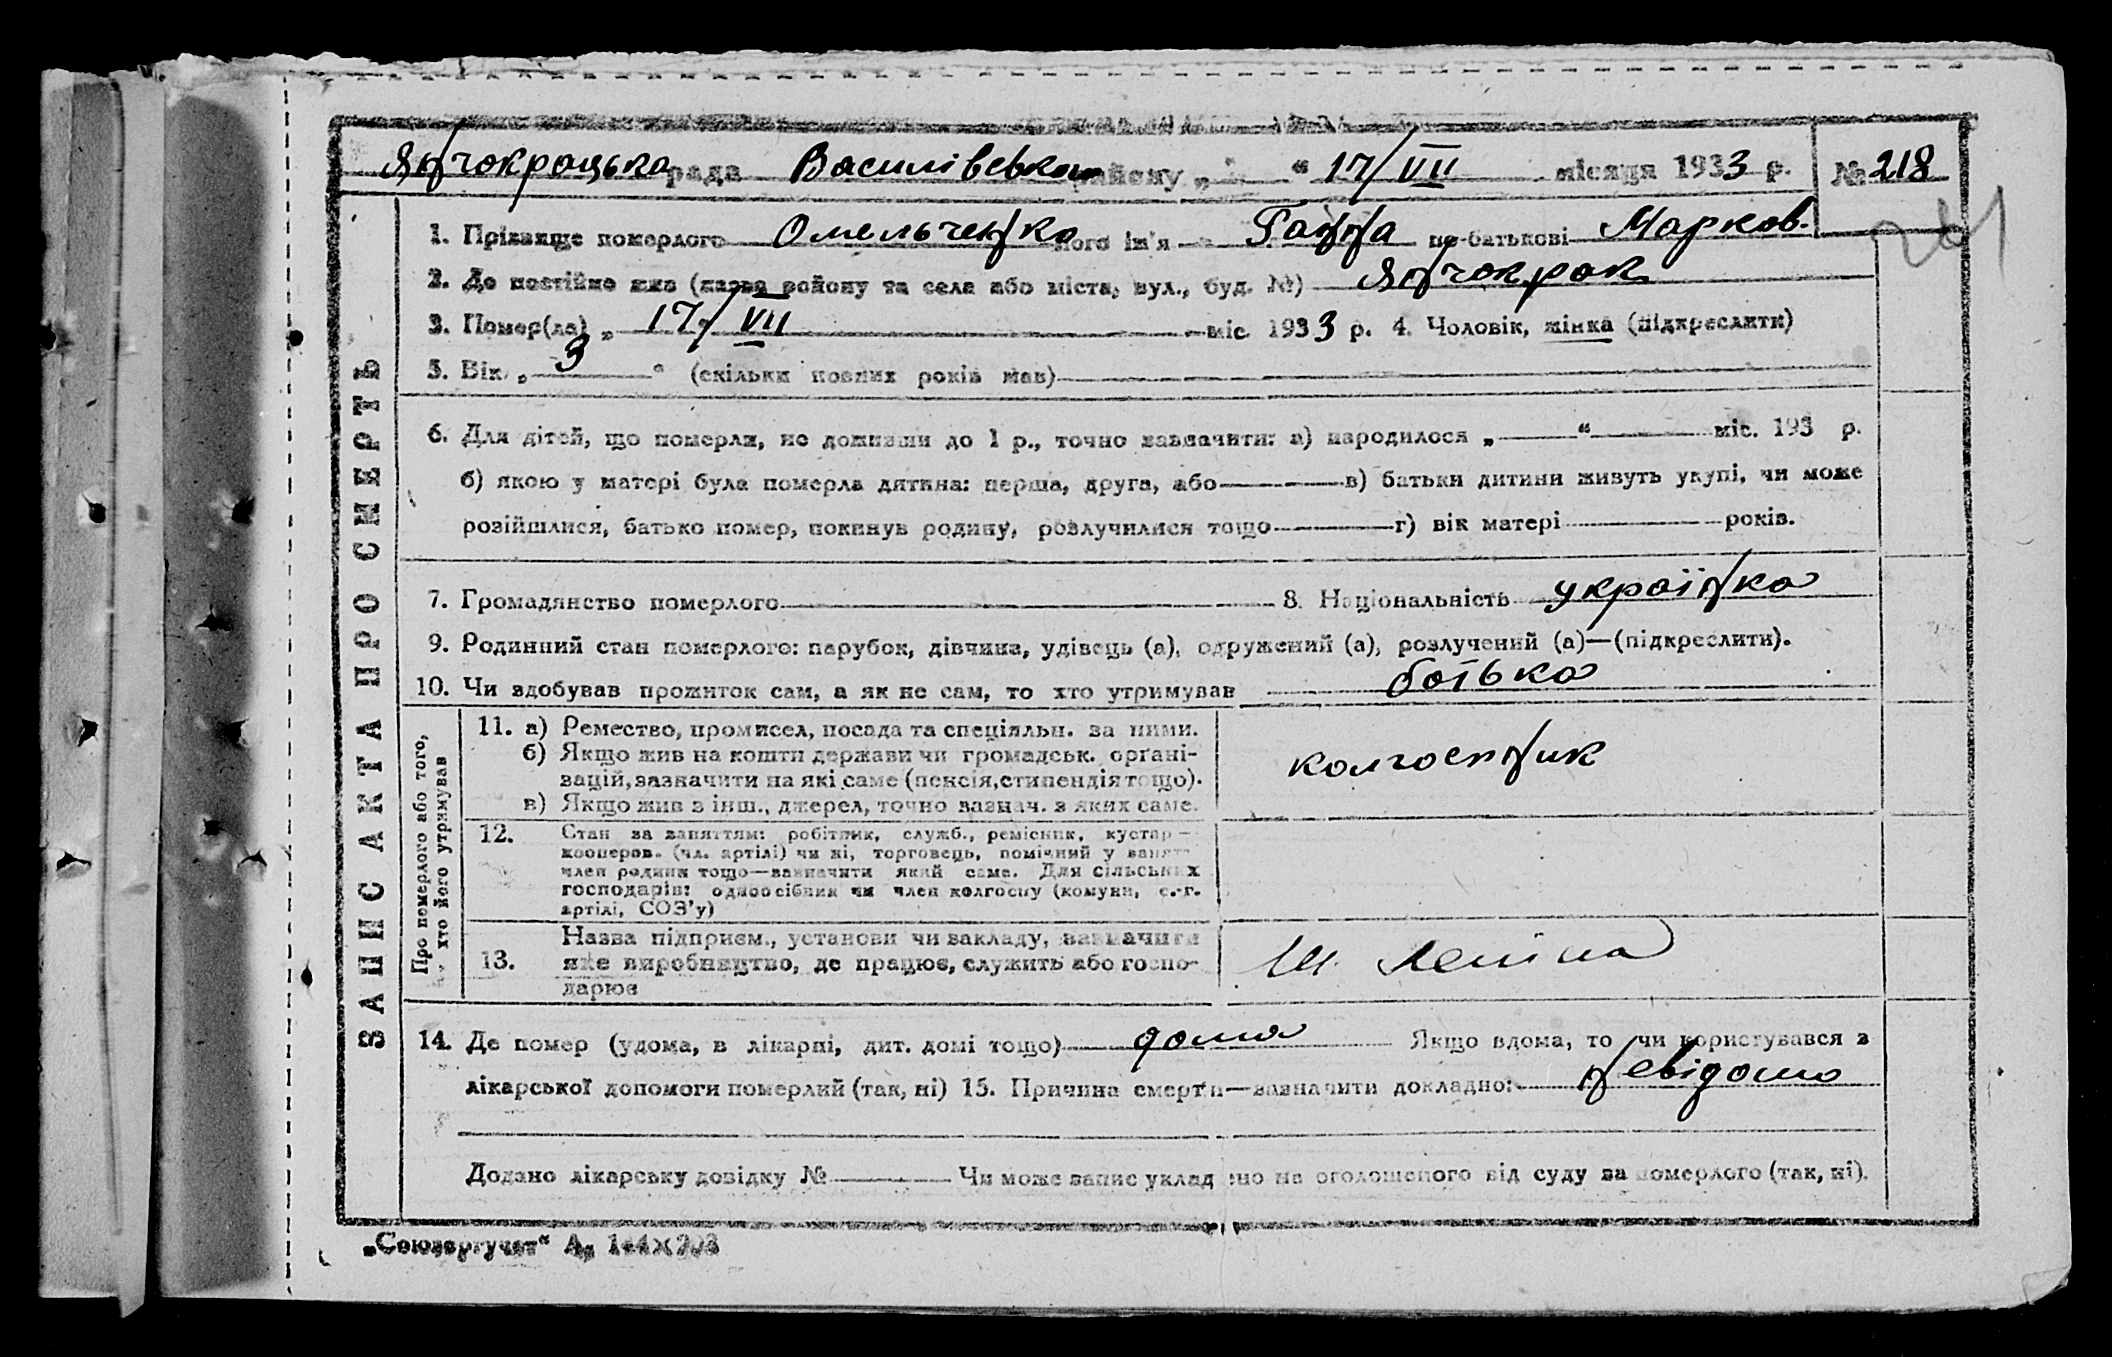 Янчокрацька рада Василівського району „ “ 17/VII місяця 1933 р. № 218
1. Прізвище померлого Омельченко його ім'я Ганна по-батькові Марков.
2. Де постійно жив (назва району та села або міста, вул., буд. №) Янчокрак
3. Помер(ла) „ 17/VII міс. 1933 р. 4. Чоловік, жінка (підкреслити)
5. Вік „ 3 “ (скільки повних років мав)
6. Для дітей, що померли, не доживши до 1 р., точно зазначити: а) народилося „ “ міс. 193 р.
б) якою у матері була померла дитина: перша, друга, або в) батьки дитини живуть укупі, чи може
розійшлися, батько помер, покинув родину, розлучилися тощо г) вік матері років.
7. Громадянство померлого 8. Національність українка
9. Родинний стан померлого: парубок, дівчина, удівець (а), одружений (а), розлучений (а)—(підкреслити).
10. Чи здобував прожиток сам, а як не сам, то хто утримував батько
ЗАПИС АКТА ПРО СМЕРТЬ
Про померлого або того,
хто його утримував
11. а) Ремество, промисел, посада та спеціяльн. за ними.
б) Якщо жив на кошти держави чи громадськ. орґані-
зацій, зазначити на які саме (пенсія, стипендія тощо).
в) Якщо жив з інш., джерел, точно зазнач. з яких саме.
колгоспник
12. Стан за заняттям: робітник, служб., ремісник, кустар —
кооперов. (чл. артілі) чи ні, торговець, помічний у занятт
член родини тощо—зазначити який саме. Для сільських
господарів: одноосібник чи член колгоспу (комуни, с.-г.
артілі, СОЗ'у)
13. Назва підприєм., установи чи закладу, зазначити
яке виробництво, де працює, служить або госпо-
дарює
Ім. Леніна
14. Де помер (удома, в лікарні, дит. домі тощо) дома Якщо вдома, то чи користувався з
лікарської допомоги померлий (так, ні) 15. Причина смерти—зазначити докладно: невідомо
Додано лікарську довідку № Чи може запис укладено на оголошеного від суду за померлого (так, ні).
„Союзоргучет“